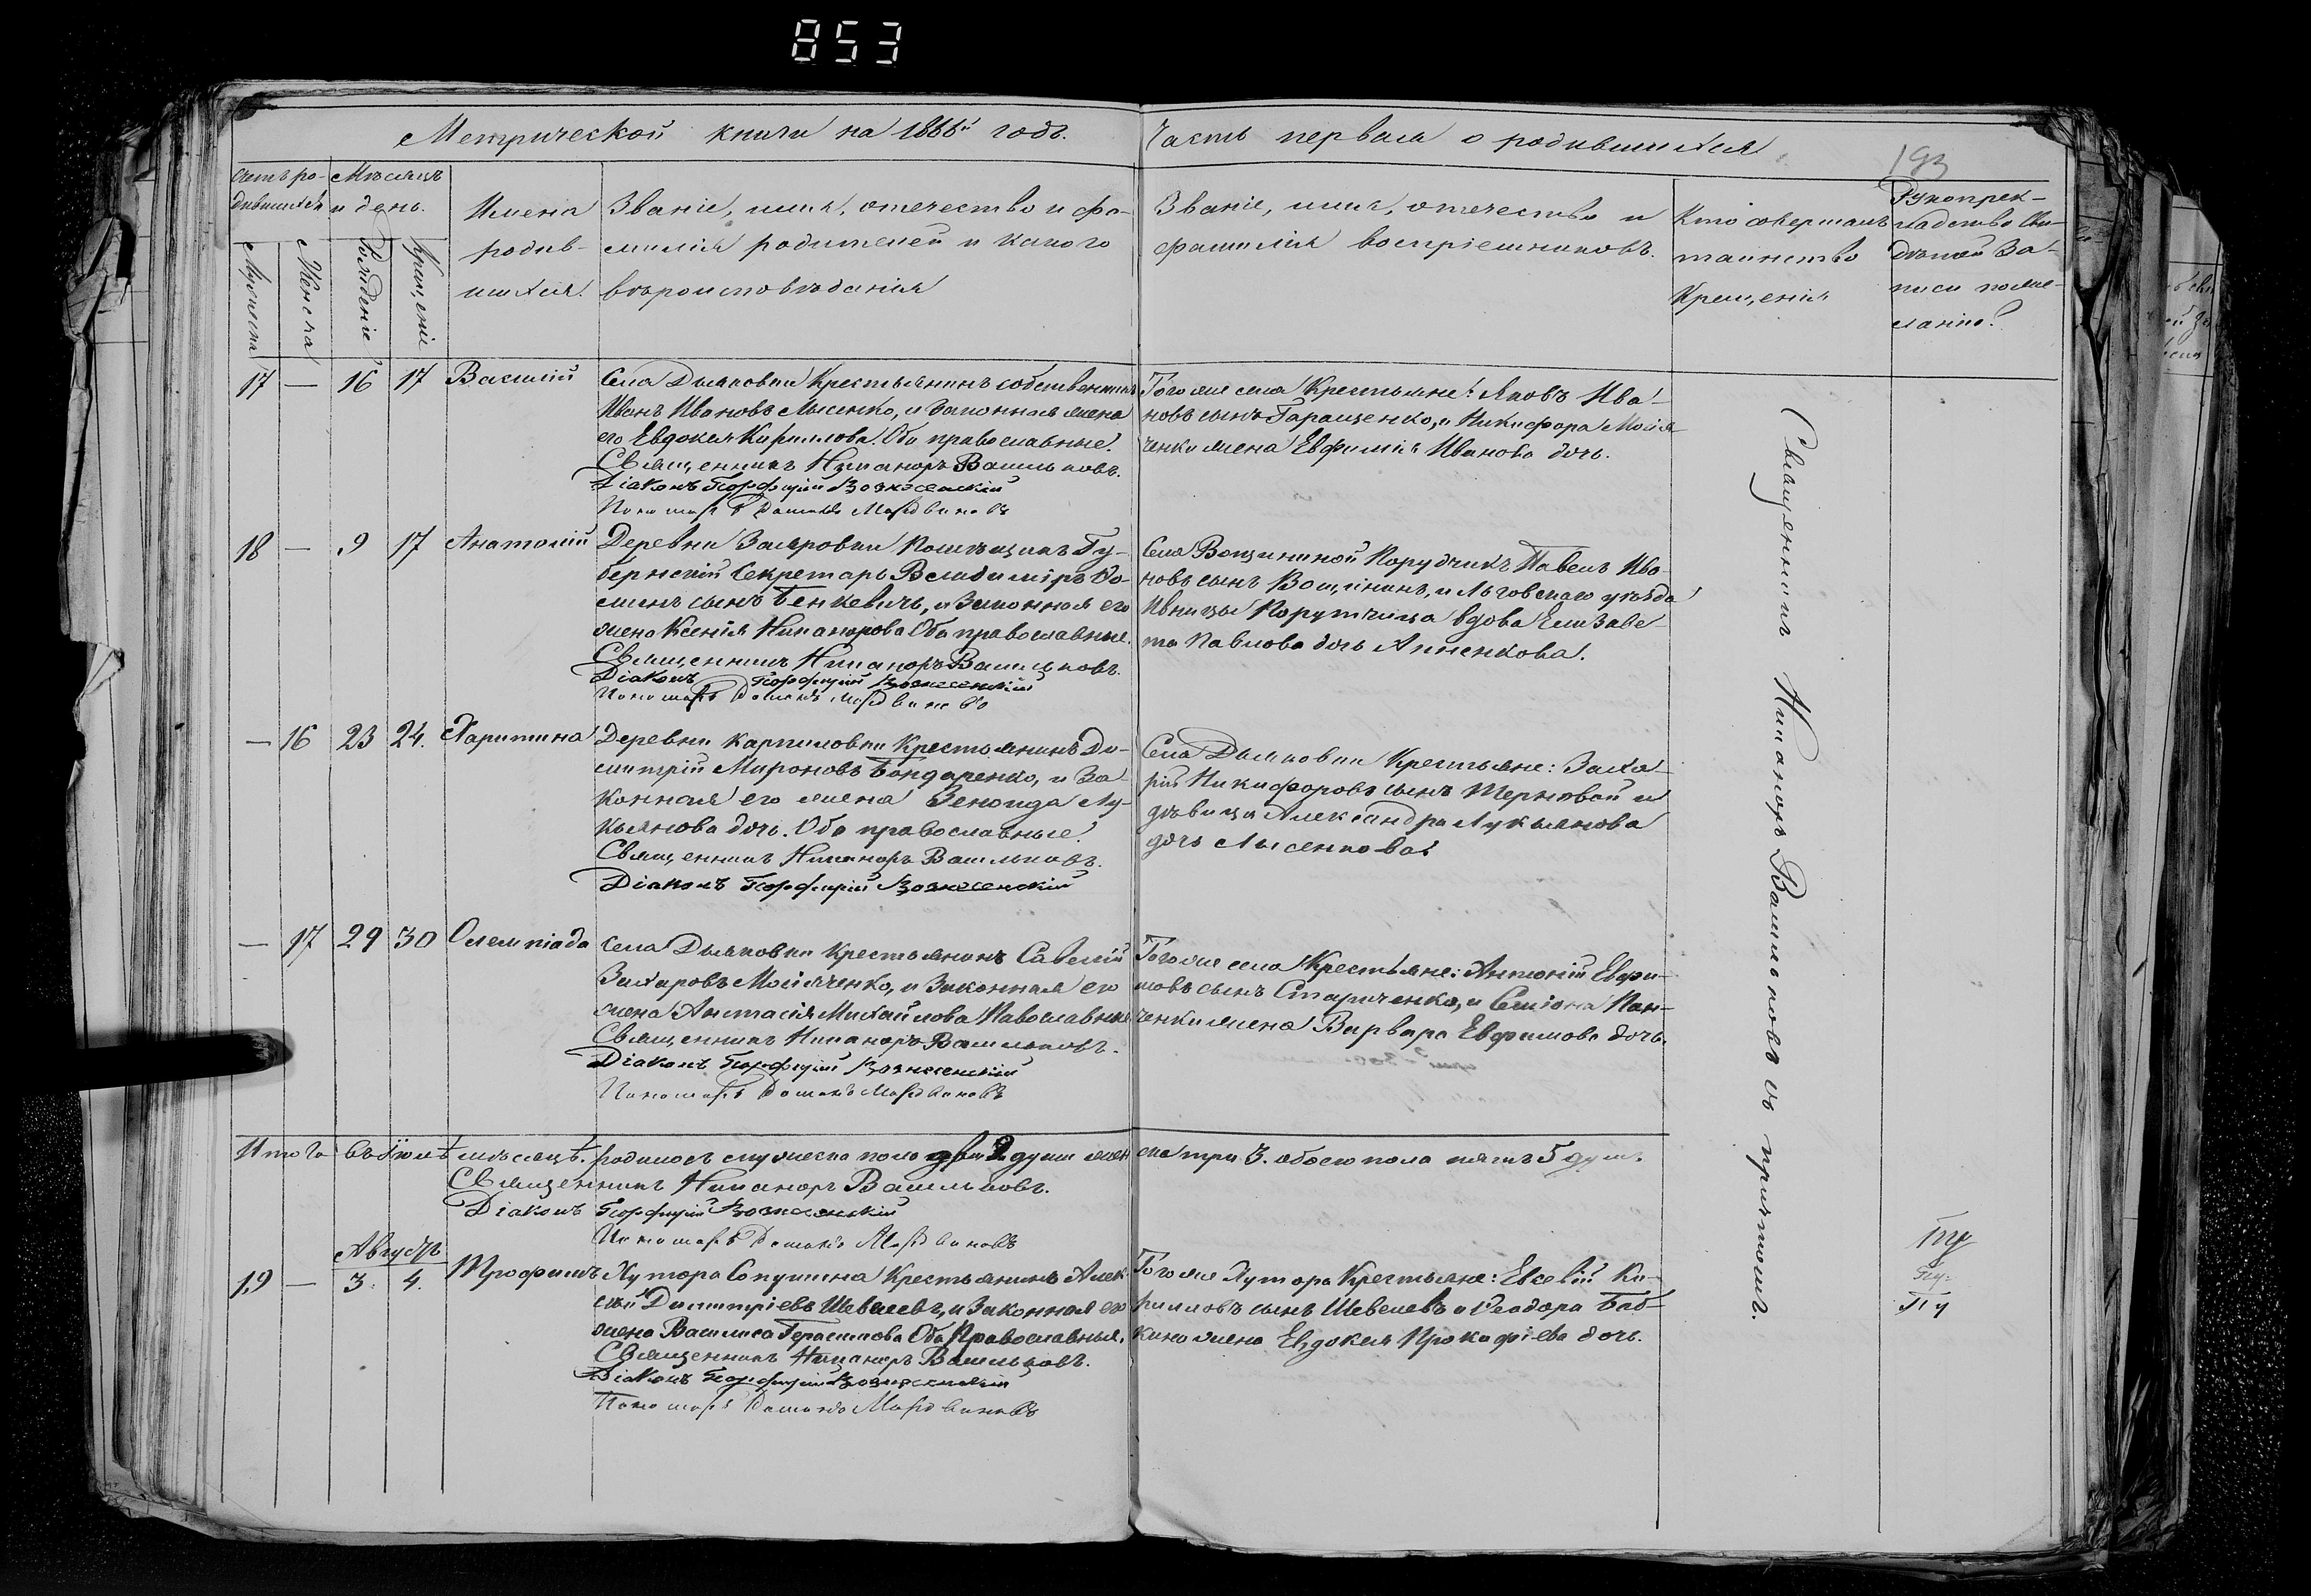 853
Метрической книги на 1866й годъ. Часть первая о родившихся
193
Счетъ ро-
дившихся
Мѣсяцъ
и день.
Мужеска
Женска
Рожденіе
Крещеніе
Имена
родив-
шихся.
Званіе, имя, отечество и фа-
милія родителей и какого
вѣроисповѣданія
Званіе, имя, отечество и
фамилія воспріемниковъ.
Кто совершалъ
таинство
Крещенія
Рукоприк-
ладство сви-
дѣтелей за-
писи по же-
ланію?
17 — 16 17 Василій
Села Дьяковки Крестьянинъ собственникъ
Иванъ Ивановъ Лысенко, и Законная жена
его Евдокея Кириллова. Оба православные.
Священникъ Никаноръ Васильковъ.
Діаконъ Порфирій Вознесенскій
Пономарь Домкъ Мордвиновъ
Тогоже села Крестьяне: Яковъ Ива-
новъ сынъ Гаращенко, и Никифора Мойя-
ченки жена Евфимія Иванова дочь.
18 — 9 17 Анатолій
Деревни Захаровки Помѣщикъ Гу-
бернскій Секретарь Владиміръ
сынъ Бенкевичь, и Законная его
жена Ксенія Никанорова Оба православные.
Священникъ Никаноръ Васильковъ.
Діаконъ Порфирій Вознесенскій
Пономарь Мордвиновъ
Села Вощининой Порудчикъ Павелъ Ива-
новъ сынъ Вощининъ, и Льговскаго уѣзда
Ивницы Порутчица вдова Елизаве-
та Павлова дочь Анненкова.
— 16 23 24. Харитина
Деревни Карпиловки Крестьянинъ Ди-
митрій Мироновъ Бондаренко, и За-
конная его жена Зеноида Лу-
кьянова дочь. Оба православные.
Священникъ Никаноръ Васильковъ.
Діаконъ Порфирій Вознесенскій
Села Дьяковки Крестьяне: Заха-
рій Никифоровъ сынъ Терновой и
дѣвица Александра Лукьянова
дочь Лысенкова.
— 17 29 30 Олемпіада
Села Дьяковки Крестьянинъ Савелій
Захаровъ Мойяченко, и Законная его
жена Анстасія Михайлова Павославные
Священникъ Никаноръ Васильковъ.
Діаконъ Порфирій Вознесенскій
Пономарь Мордвиновъ
Тогоже села Крестьяне: Антоній Евфи-
мовъ сынъ Стариченко, и Семіона Пан-
ченки жена Варвара Евфимова дочь.
Священникъ Никаноръ Васильковъ съ причтомъ.
Итого въ Іюлѣ мѣсяцѣ. родилось мужеска пола два 2 души жен
ска три 3. обоего пола пять 5 душъ.
Священникъ Никаноръ Васильковъ.
Діаконъ Порфирій Вознесенскій
Пономарь Мордвиновъ
Августъ
19 — 3. 4. Трофимъ
Хутора Сопушина Крестьянинъ Алек-
сѣй Димитріевъ Шевелевъ, и Законная его
жена Василиса Герасимова Оба Православныя.
Священникъ Никаноръ Васильковъ.
Діаконъ Порфирій Вознесенскій
Пономарь Мордвиновъ
Тогоже Хутора Крестьяне: Евсевій Ки-
рилловъ сынъ Шевелевъ и Ѳеодора Баб-
кина жена Евдокея Прокофіева дочь.